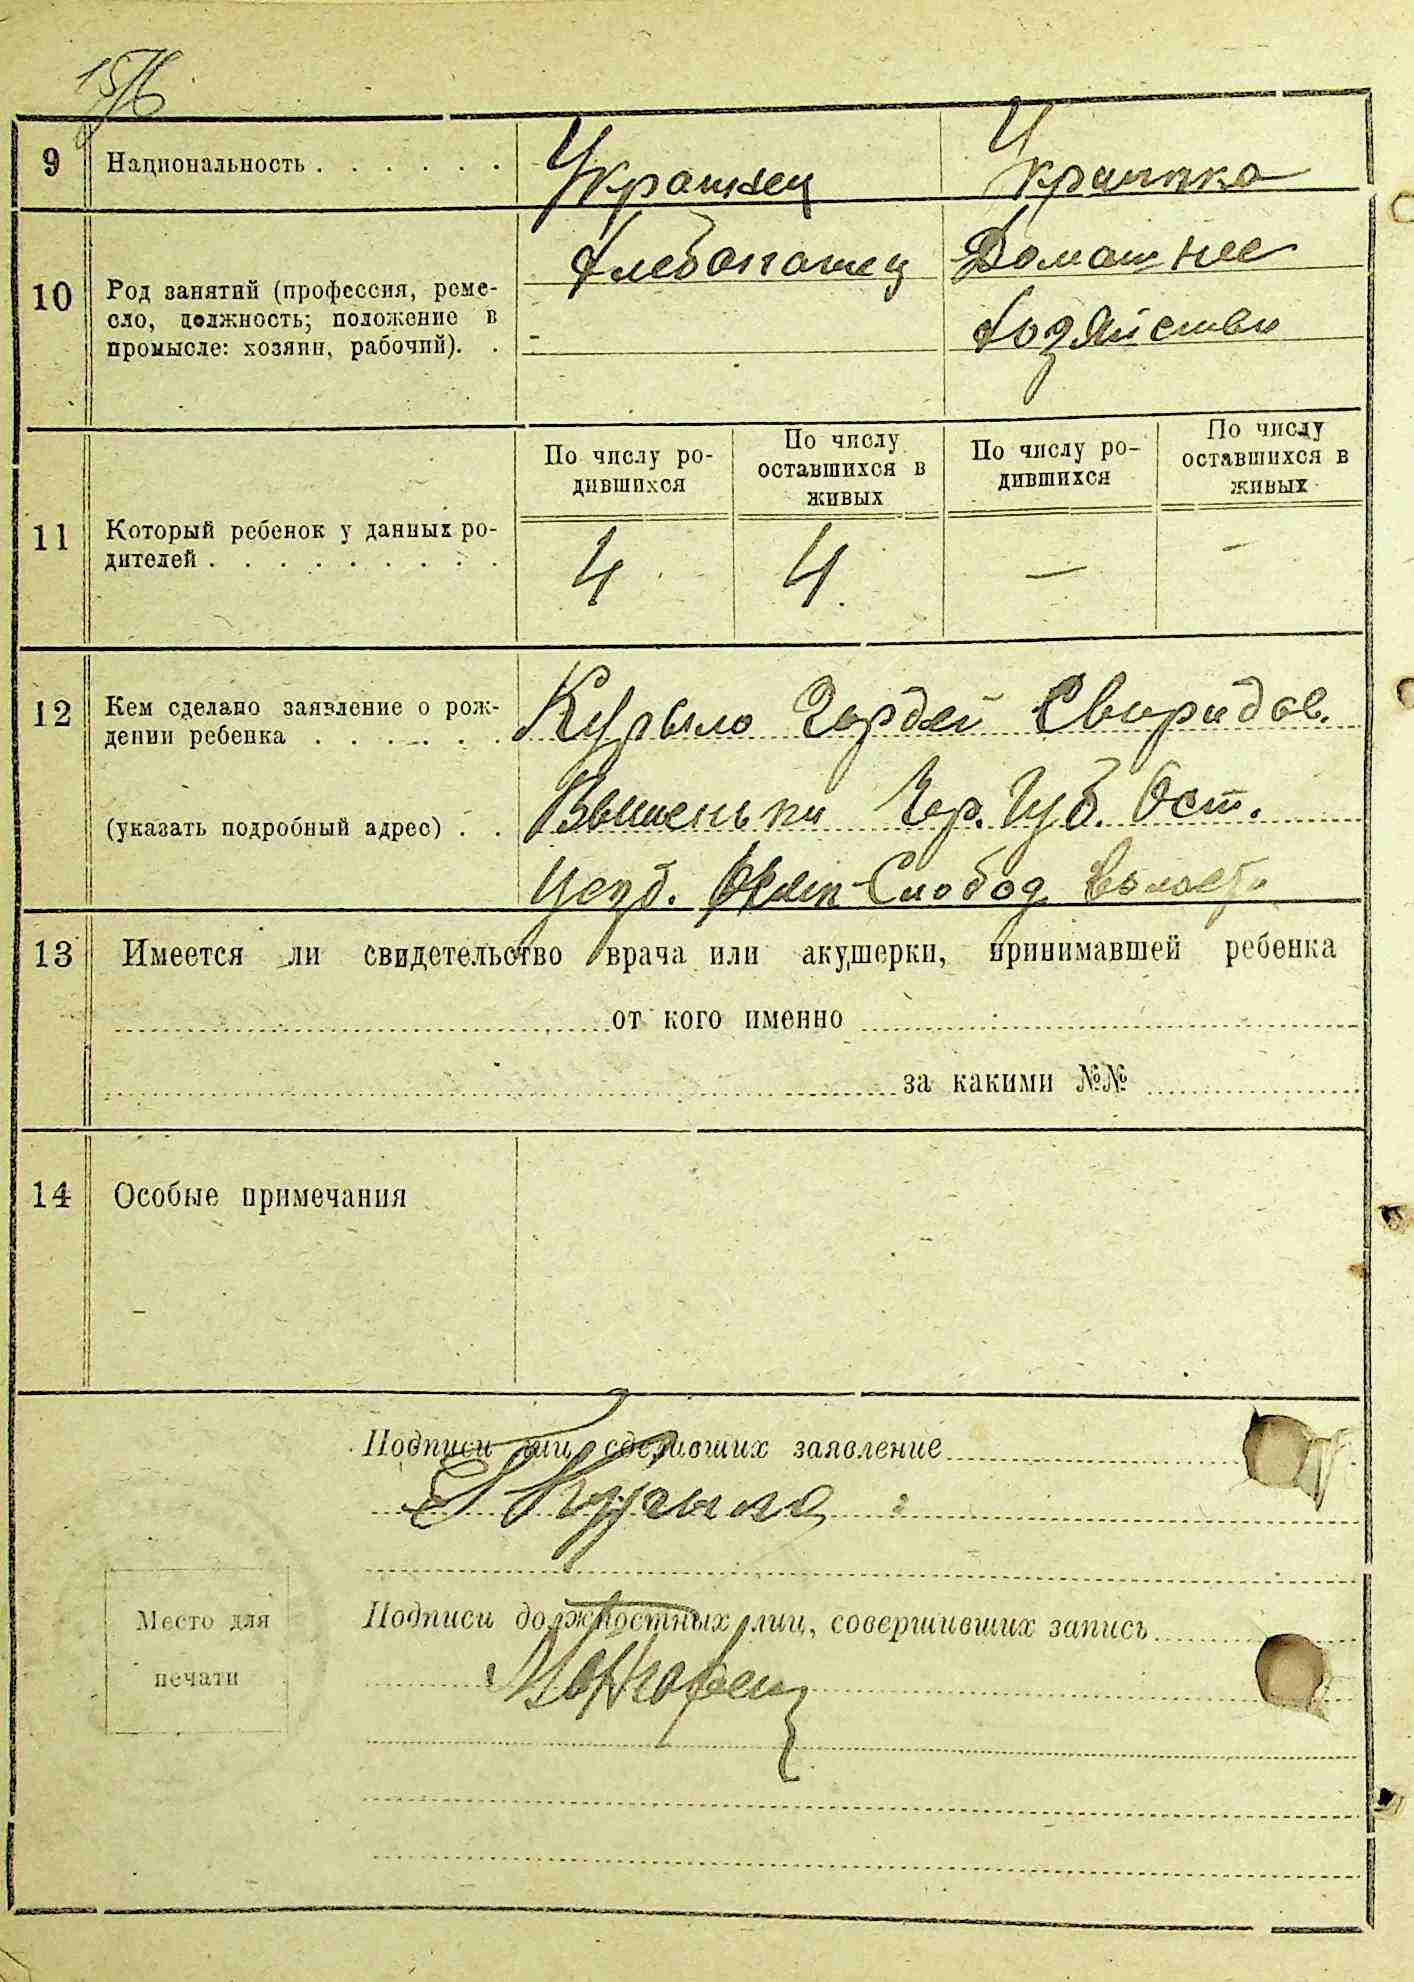 9 Национальность . . . . . . Украинец Украинка
10 Род занятий (профессия, реме-
сло, должность; положение в
промысле: хозяин, рабочий). .
Хлебопашец Домашнее
Хозяйство
11 Который ребенок у данных ро-
дителей . . . . . . . . .
По числу ро-
дившихся
По числу
оставшихся в
живых
По числу ро-
дившихся
По числу
оставшихся в
живых
4 4 — -
12 Кем сделано заявление о рож-
дении ребенка . . . . . .
(указать подробный адрес) . .
Курыло Гордей Свиридов.
Вишеньки Чер. Губ. Ост.
Уезд. Слобод волость
13 Имеется ли свидетельство врача или акушерки, принимавшей ребенка
от кого именно
за какими №№
14 Особые примечания
Подписи лиц, сделавших заявление
Курыло
Подписи должностных лиц, совершивших запись
Место для
печати